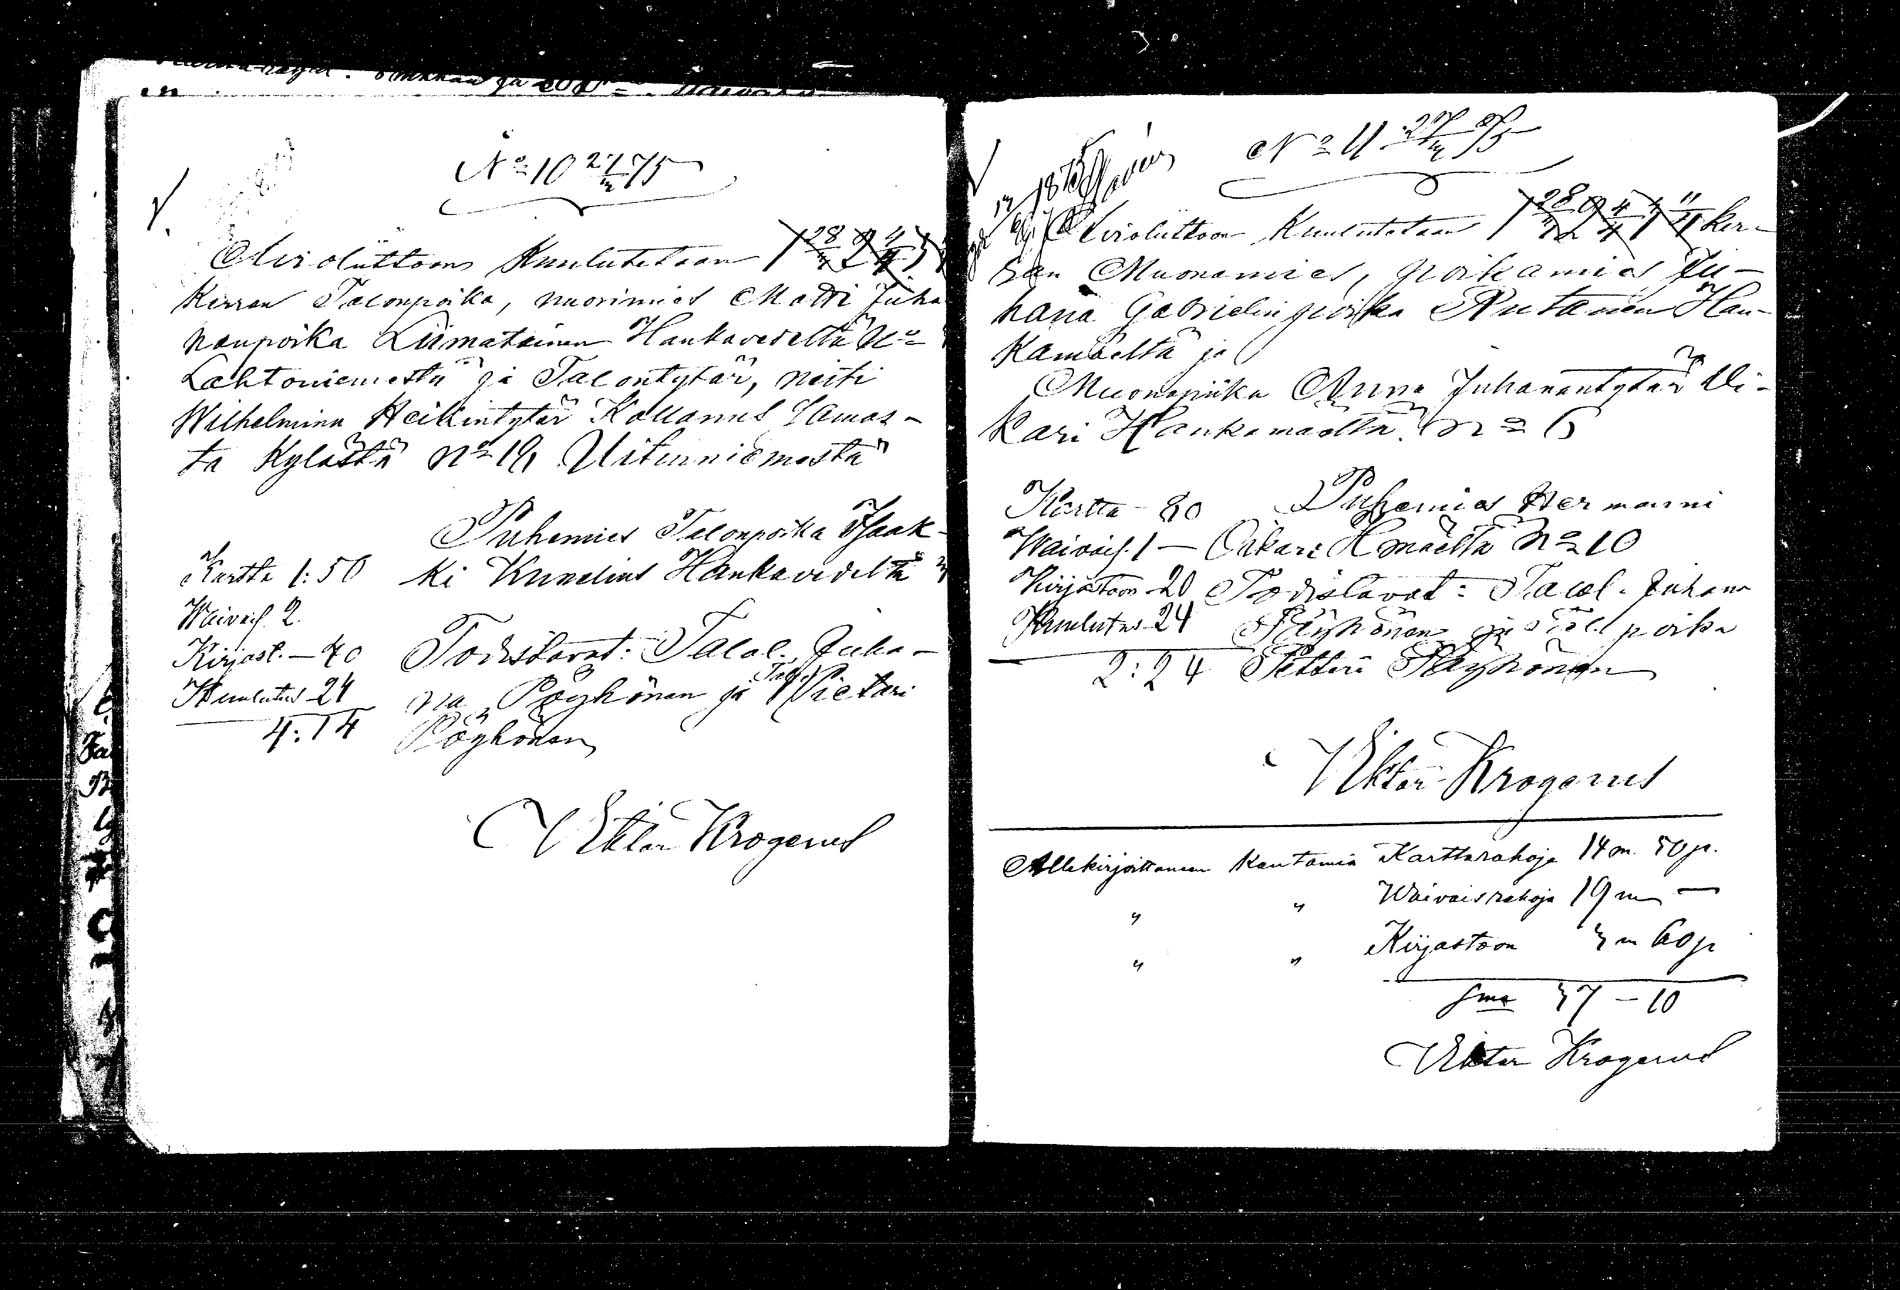 No 10 27/3 75
Avioliittoon Kuulutetaan 1 28/3 2 4/4 3
Kerran Talonpoika, nuorimies Matti Juha
nanpoika Liimatainen Hankavedeltä No
Lahtoniemestä ja Talontytär, neiti
Wilhelmina Heikintytär Kollanus samas-
ta Kylästä No 19 Uitunniemestä
Puhemies Talonpoika Isaak-
ki Kunelius Hankavedeltä
Kartta 1:50
Waivais. 2.
Kirjast. — 40
Kuulutus 24
4:14
Todistavat: Talol. Juha-
na Pöyhönen ja Tal. Victari
Pöyhönen
Viktor Krogerus
No 11 27/3 75
1875
Avioliittoon Kuulutetaan 1 28/3 2 4/4 3 11/4 ker-
ran Muonamies, poikamies Ju-
hana Gabrielinpoika Rutanen Han-
kamäeltä ja
Muonapiika Anna Juhanantytär Ui-
kari Hankamäeltä No 6
Puhemies Hermanni
Oikari Hmäeltä No 10
Kartta — 80
Waivais. 1 —
Kirjastoon 20
Kuulutus 24
2:24
Todistavat: Talol. Juhana
Pöyhönen ja Tal. poika
Petteri Pöyhönen
Viktor Krogerus
Allekirjoittaneen kantamia Karttarahoja 14 m. 50 p.
" " Waivaisrahoja 19 m —
" " Kirjastoon 3 m 60 p
Sma 37 — 10
Viktor Krogerus